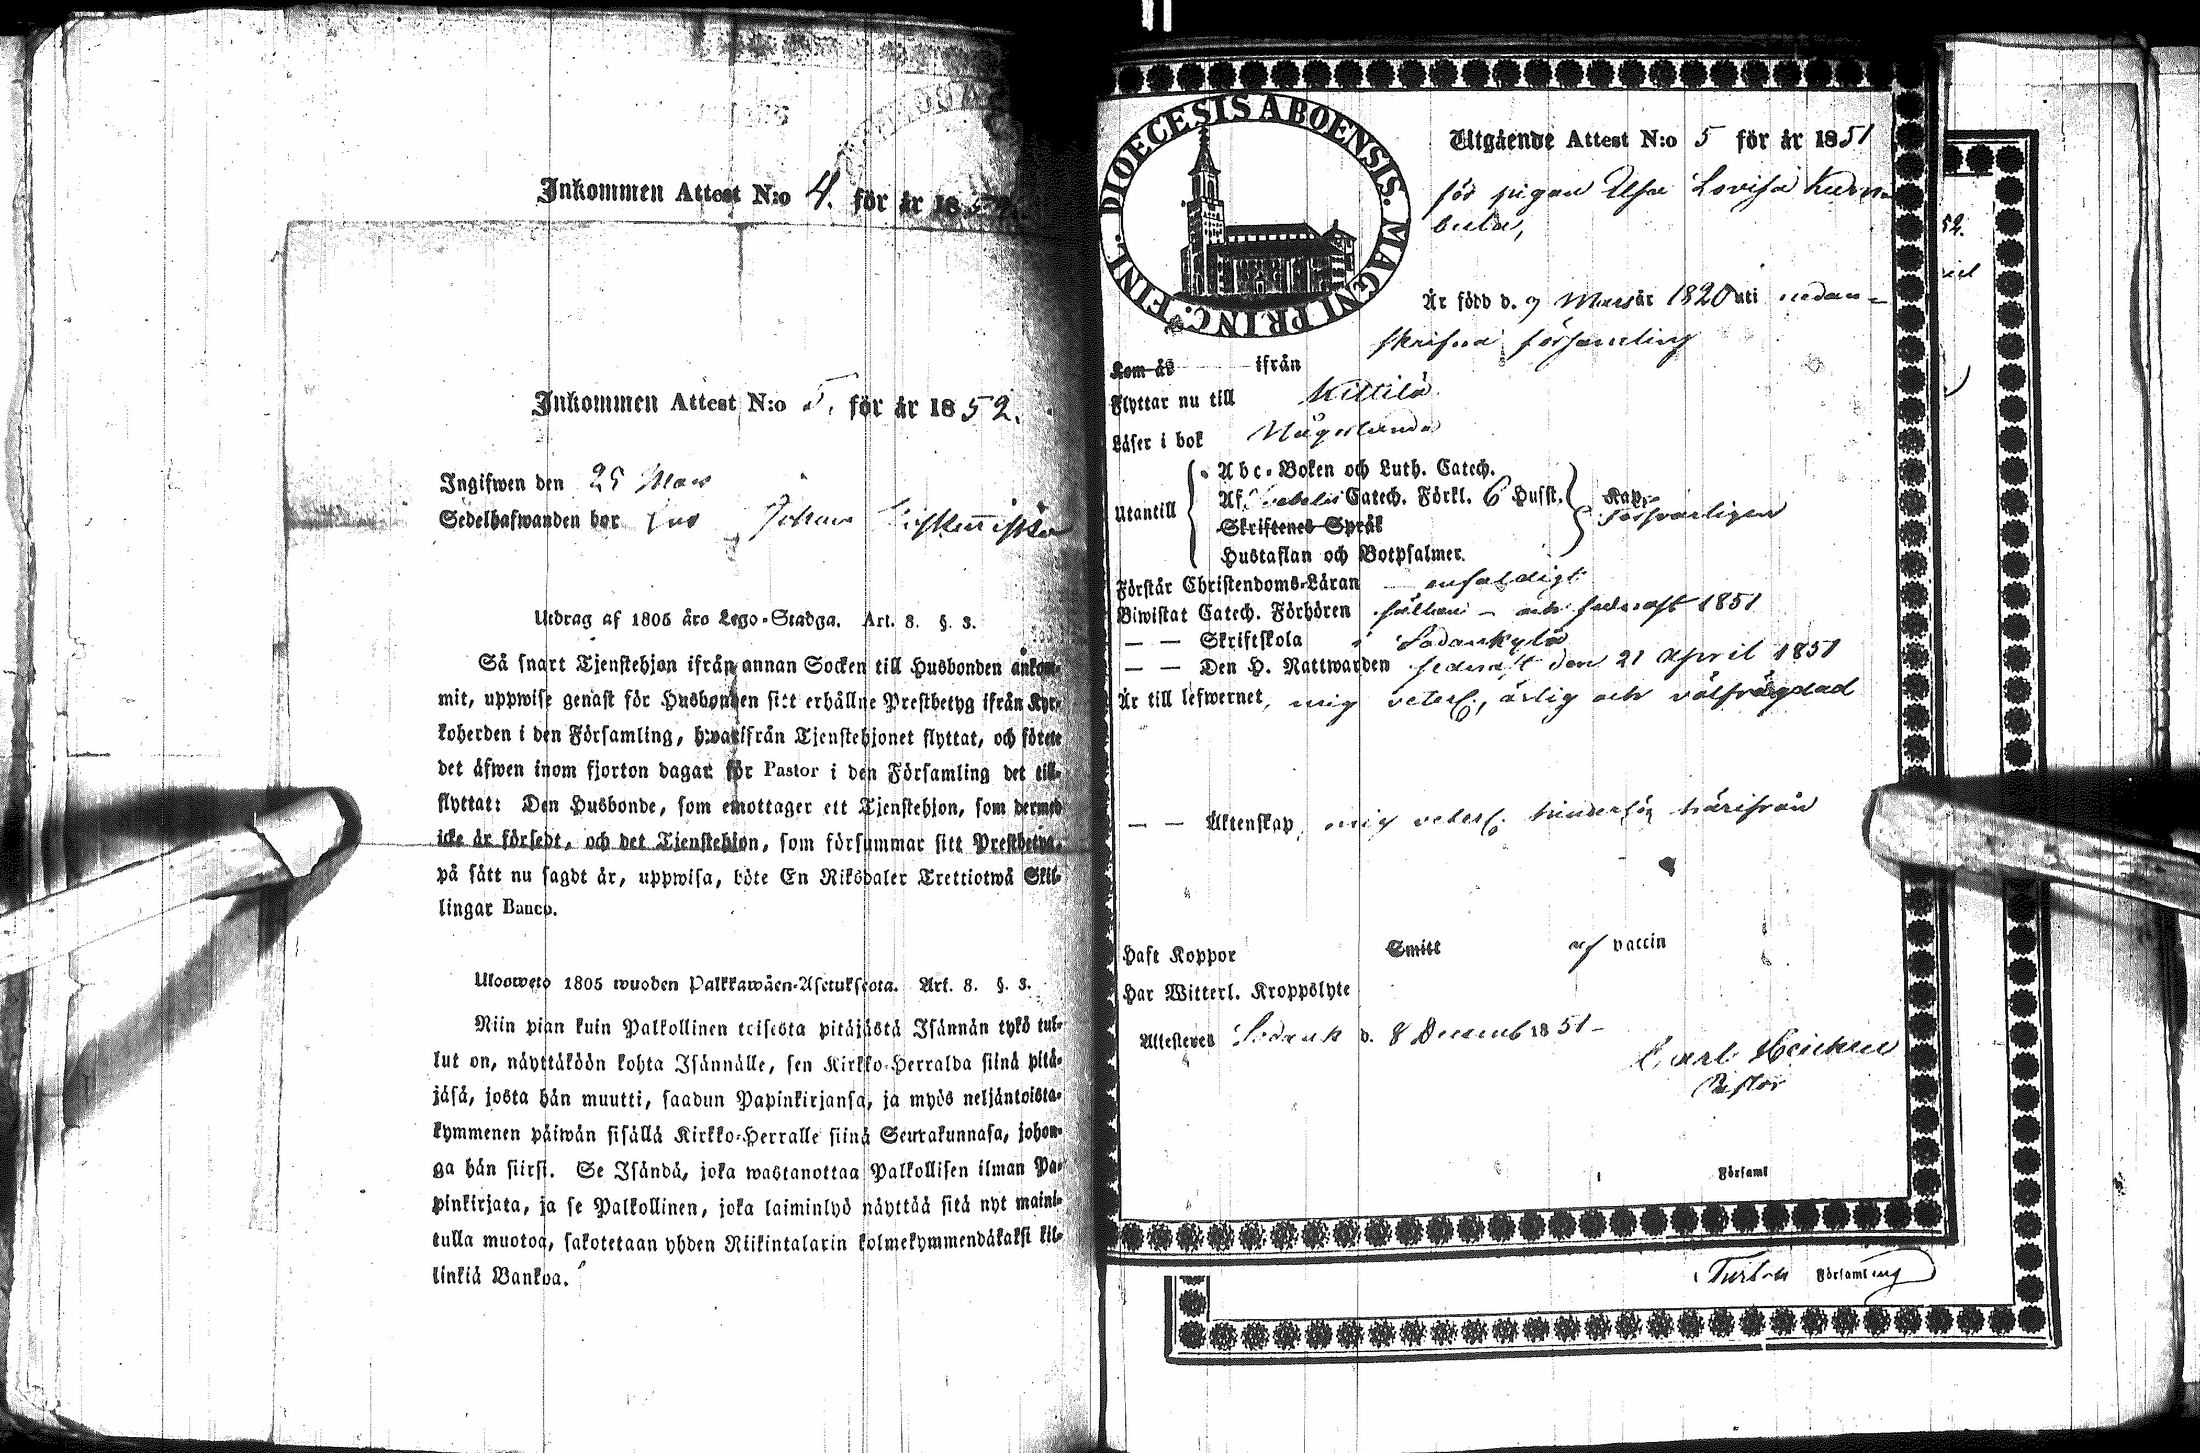 Inkommen Attest N:o 4. för år 18
Inkommen Attest N:o 5. för år 1852.
Ingifwen den 25 Mars
Sedelhafwanden bor hos Johan
Utdrag af 1805 års Lego-Stadga. Art. 8. §. 3.
Så snart Tjenstehjon ifrån annan Socken till Husbonden ankom-
mit, uppwise genast för Husbonden sitt erhållne Prestbetyg ifrån Kyr-
koherden i den Församling, hwarifrån Tjenstehjonet flyttat, och förete
det äfwen inom fjorton dagar för Pastor i den Församling det till-
flyttat: Den Husbonde, som emottager ett Tjenstehjon, som dermed
icke är försedt, och det Tjenstehjon, som försummar sitt Prestbetyg,
på sätt nu sagdt är, uppwisa, böte En Riksdaler Trettiotwå Skil-
lingar Banco.
Ulosweto 1805 wuoden Palkkawäen-Asetuksesta. Art. 8. §. 3.
Niin pian kuin Palkollinen toisesta pitäjästä Isännän tykö tul-
lut on, näyttäköön kohta Isännälle, sen Kirkko-Herralda siinä pitä-
jäsä, josta hän muutti, saadun Papinkirjansa, ja myös neljäntoista-
kymmenen päiwän sisällä Kirkko-Herralle siinä Seurakunnasa, johon-
ga hän siirsi. Se Isändä, joka wastanottaa Palkollisen ilman Pa-
pinkirjata, ja se Palkollinen, joka laiminlyö näyttää sitä nyt maini-
tulla muotoa, sakotetaan yhden Riikintalarin kolmekymmendäkaksi kil-
linkiä Bankoa.
DIOECESIS ABOENSIS. MAGNI PRINC. FINL.
Utgående Attest N:o 5 för år 1851
för pigan Elsa Lovisa
Är född d. 7 Mars år 1820 uti nedan-
skrifna församling
Kom år ifrån
Flyttar nu till Kittilä
Läser i bok Någorlunda
Utantill
Abc-Boken och Luth. Catech.
Af Catech. Förkl. 6 Husst. Kap.
försvarligen
Skriftenes Språk
Hustaflan och Botpsalmer.
Förstår Christendoms-Läran enfaldigt
Biwistat Catech. Förhören sällan – och sednast 1851
— — Skriftskola i Sodankylä
— — Den H. Nattwarden sednast den 21 April 1851
Är till lefwernet, mig veterl., ärlig och välfrägdad
— — Äktenskap, mig veterl. hinderlös härifrån
Haft Koppor Smitt af vaccin
Har Witterl. Kroppslyte
Attesteres Sodank d. 8 Decemb 1851–
Carl
Pastor
Församl
Församling
52.